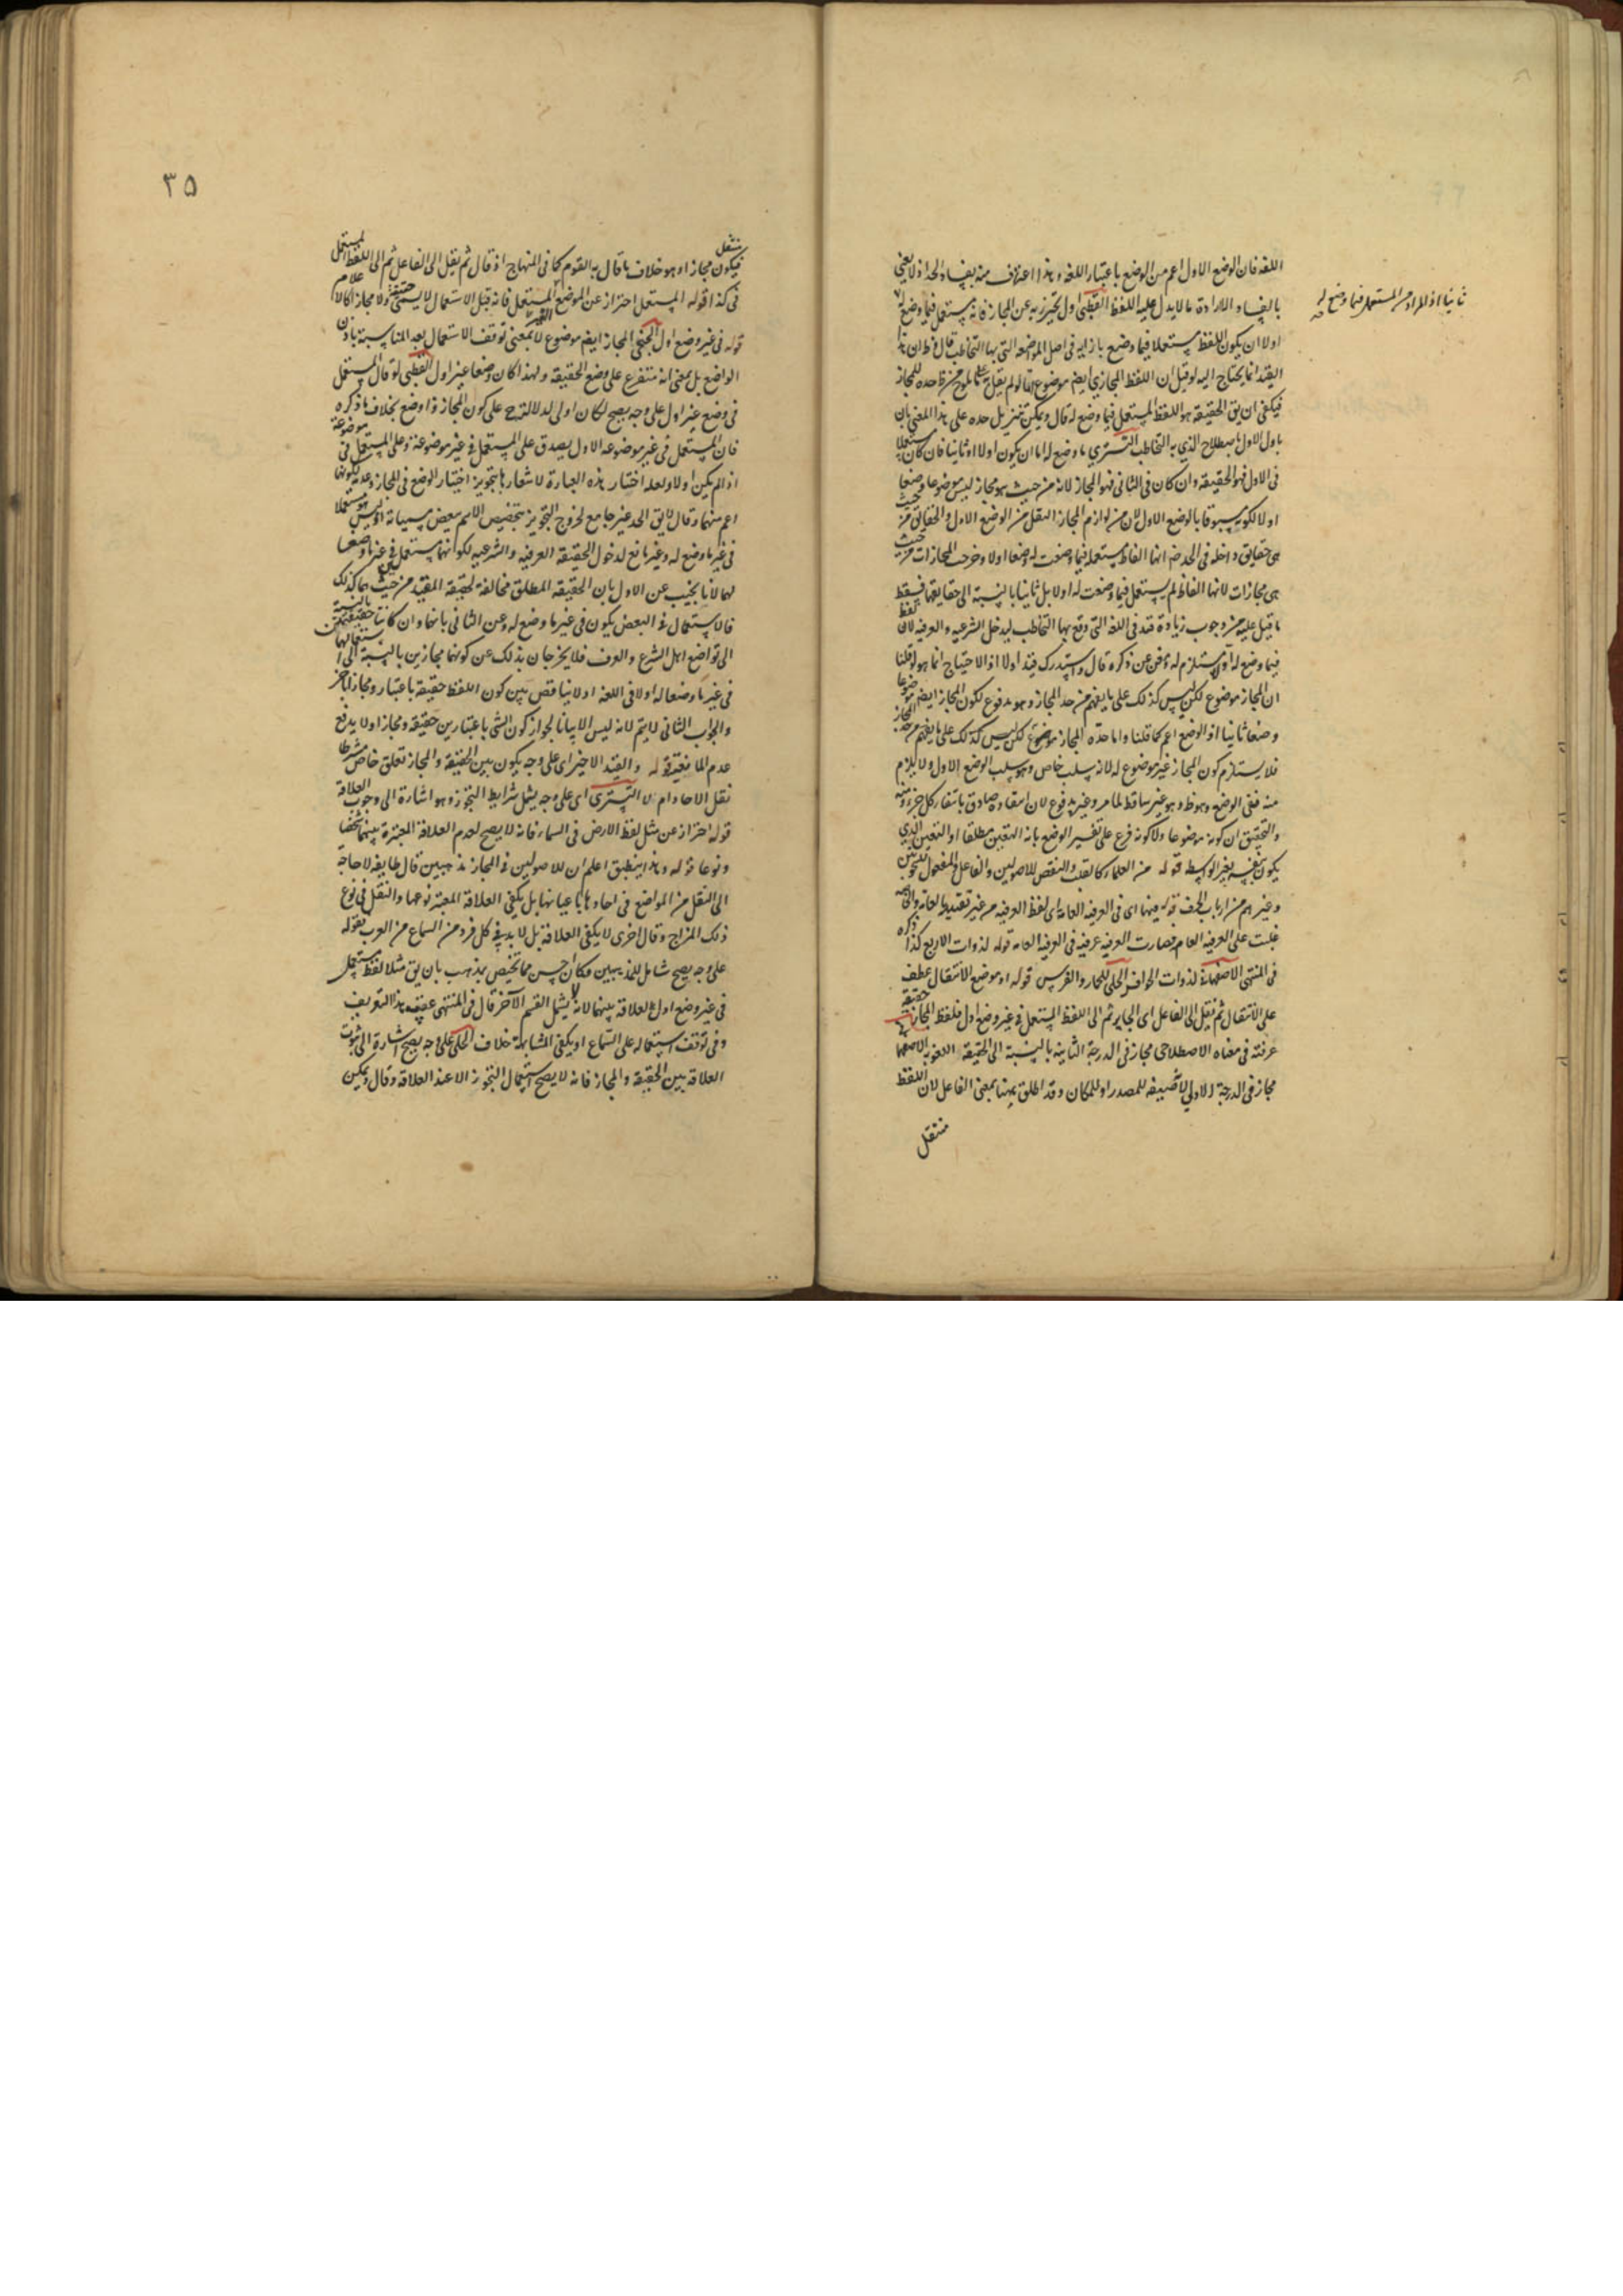 اللغه فان الوضع الاول اعم من الوضع باعتبار اللغه و هذا اعتراف منه بفساد الحد اذ لا يعنى
بالفساد الا ارادة ما لا يدل عليه اللفظ القطبى اول يحترز به عن المجاز فانه يستعمل فيما وضع له
ثانيا اذ المراد من المستعمل فيما وضع له
اولا ان يكون اللفظ مستعملا فيما وضع بازايه فى اصل المواضعه التى بها التخاطب قال فظ ان هذا
القيد انما يحتاج اليه لو قيل ان اللفظ المجازى ايضا موضوع اما لو لم يقل به على ما لوح من حده للمجاز
فيكفى ان يق الحقيقة هو اللفظ المستعمل فيما وضع له قال و يمكن تنزيل حده على هذا المعنى بان
ياول الاول باصطلاح الذى به التخاطب التسترى ما وضع له اما ان يكون اولا او ثانيا فان كان مستعملا
فى الاول فهو الحقيقة و ان كان فى الثانى فهو المجاز لانه من حيث هو مجاز ليس موضوعا وضعا
اولا لكونه مسبوقا بالوضع الاول لان من لوازم المجاز النقل من الوضع الاول و الحقايق من حيث
هى حقايق داخله فى الحد ضم انها الفاظ مستعمله فيما وضعت له وضعا اولا و خرجت المجازات من حيث
هى مجازات لانها الفاظ لم يستعمل فيما وضعت له اولا بل ثانيا بالنسبة الى حقايقها فيسقط
ما قيل عليه من وجوب زيادة قيد فى اللغه التى وقع بها التخاطب ليدخل الشرعيه و العرفيه لان لفظ
فيما وضع له اولا مستلزم له فغنى عن ذكره قال و استدرك قيد اولا اذ الاحتياج انما هو لو قلنا
ان المجاز موضوع لكن ليس كذلك على ما يفهم من حد المجاز و هو مدفوع لكون المجاز ايضا موضوعا
وضعا ثانيا اذ الوضع اعم كما قلنا و اما حده المجاز موضوع لكن ليس كذلك على ما يفهم من حد المجاز
فلا يستلزم كون المجاز غير موضوع له لانه سلب خاص و هو سلب الوضع الاول و لا يلزم
منه نفى الوضع و هو ظ و هو غير ساقط لما مر و غير مدفوع لان انتفاءه صادق بانتفاء كل جزء منه
و التحقيق ان كونه موضوعا و لا كونه فرع على تفسير الوضع بانه التعيين مطلقا او التعيين الذى
يكون بنفسه بغير الوسيط قوله من العلماء كالقلب و النقض للاصوليين و الفاعل و المفعول للنحويين
و غيرهم من ارباب الحرف قوله فيهما اى فى العرفيه العامه اى لفظ العرفيه من غير تقييدها بعامه و الخاصه
غلبت على العرفيه العام فصارت العرفيه عرفيه فى العرفيه العامه قوله لذوات الاربع كذا ذكره
فى المنتهى الاصفهانى لذوات الحوافر الحلى للحمار و الفرس قوله او موضع الانتقال عطف
على الانتقال ثم نقل الى الفاعل اى الجايز ثم الى اللفظ المستعمل فى غير وضع اول فلفظ المجاز حقيقة
عرفيه فى معناه الاصطلاحى مجاز فى الدرجة الثانيه بالنسبة الى الحقيقة اللغويه الاصفهانى
مجاز فى الدرجة الاولى لان صيغه للمصدر او للمكان و قد اطلق ههنا بمعنى الفاعل لان اللفظ
منتقل
٣٥
منتقل
فيكون مجازا و هو خلاف ما قال به القوم كما فى المنهاج اذ قال ثم نقل الى الفاعل ثم الى اللفظ المستعمل
فى كذا قوله المستعمل احتراز عن الموضع المستعمل فانه قبل الاستعمال لا يسمى حقيقة و لا مجاز كالاعلام
قوله فى غير وضع اول الخنجى المجاز ايضا موضوع لا بمعنى توقف الاستعمال بعد المناسبة باذن
الواضع بل بمعنى انه متفرع على وضع الحقيقة و لهذا كان وضعا غير اول القطبى لو قال المستعمل
فى وضع غير اول على وجه يصح لكان اولى لدلالته على كون المجاز ذا وضع بخلاف ما ذكره
فان المستعمل فى غير موضوعه الاول يصدق على المستعمل فى غير موضوعه و على المستعمل فى موضوعه
اذا لم يكن اولا و لعله اختار هذه العبارة لاشعارها بتجويز اختيار الوضع فى المجاز و عدمه لكونها
اعم منهما و قال لا يق الحد غير جامع لخروج التجويز بتخصيص الاسم ببعض مسمياته اذ ليس هو مستعملا
فى غير ما وضع له و غير مانع لدخول الحقيقة العرفيه و الشرعيه لكونهما مستعملين فى غير ما وضعا
لهما لانا نجيب عن الاول بان الحقيقة المطلق مخالفة لحقيقة المقيد من حيث هما كذلك
فالاستعمال فى البعض يكون فى غير ما وضع له و عن الثانى بانهما و ان كانتا حقيقيتين بالنسبة
الى تواضع اهل الشرع و العرف فلا يخرجان بذلك عن كونهما مجازين بالنسبة الى استعمالهما
فى غير ما وضعا له اولا فى اللغه اذ لا تناقض بين كون اللفظ حقيقة باعتبار و مجازا باخر
و الجواب الثانى لا يتم لانه ليس الا بيانا لجواز كون الشى باعتبارين حقيقه و مجازا و لا يدفع
عدم المانعيه قوله و القيد الاخير اى على وجه يكون بين الحقيقة و المجاز تعلق خاص شرطا
نقل الاحاد ام لا التسترى اى على وجه يشمل شرايط التجوز و هو اشارة الى وجوب العلاقة
قوله احتراز عن مثل لفظ الارض فى السماء فانه لا يصح لعدم العلاقة المعتبرة بينهما شخصا
و نوعا قوله و هذا ينطبق اعلم ان للاصوليين فى المجاز مذهبين قال طايفه لا حاجة
الى النقل من الواضع فى احادها باعيانها بل يكفى العلاقة المعتبر نوعها و النقل فى نوع
ذلك المزاج و قال اخرى لا يكفى العلاقة بل لا بد فى كل فرد من السماع من العرب بقوله
على وجه يصح شامل للمذهبين و كان احسن مما يختص بمذهب بان يق مثلا لفظ مستعمل
فى غير وضع اول لعلاقة بينهما لانه لا يشمل القسم الاخر قال فى المنتهى عقيب هذا التعريف
و فى توقف استعماله على السماع او يكفى المشابهة خلاف الحلى على وجه يصح اشارة الى ثبوت
العلاقة بين الحقيقة و المجاز فانه لا يصح استعمال التجوز الا عند العلاقة و قال و يمكن